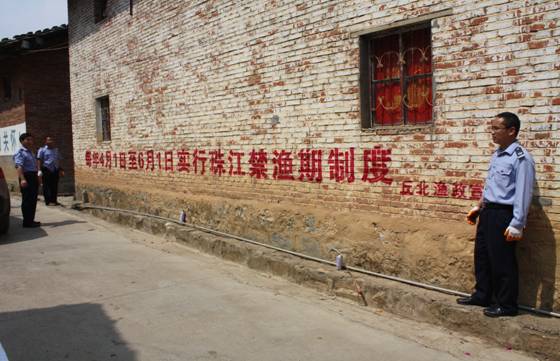 每年4月1日至6月1日实行珠江禁渔期制度
丘北渔政宣
关怀